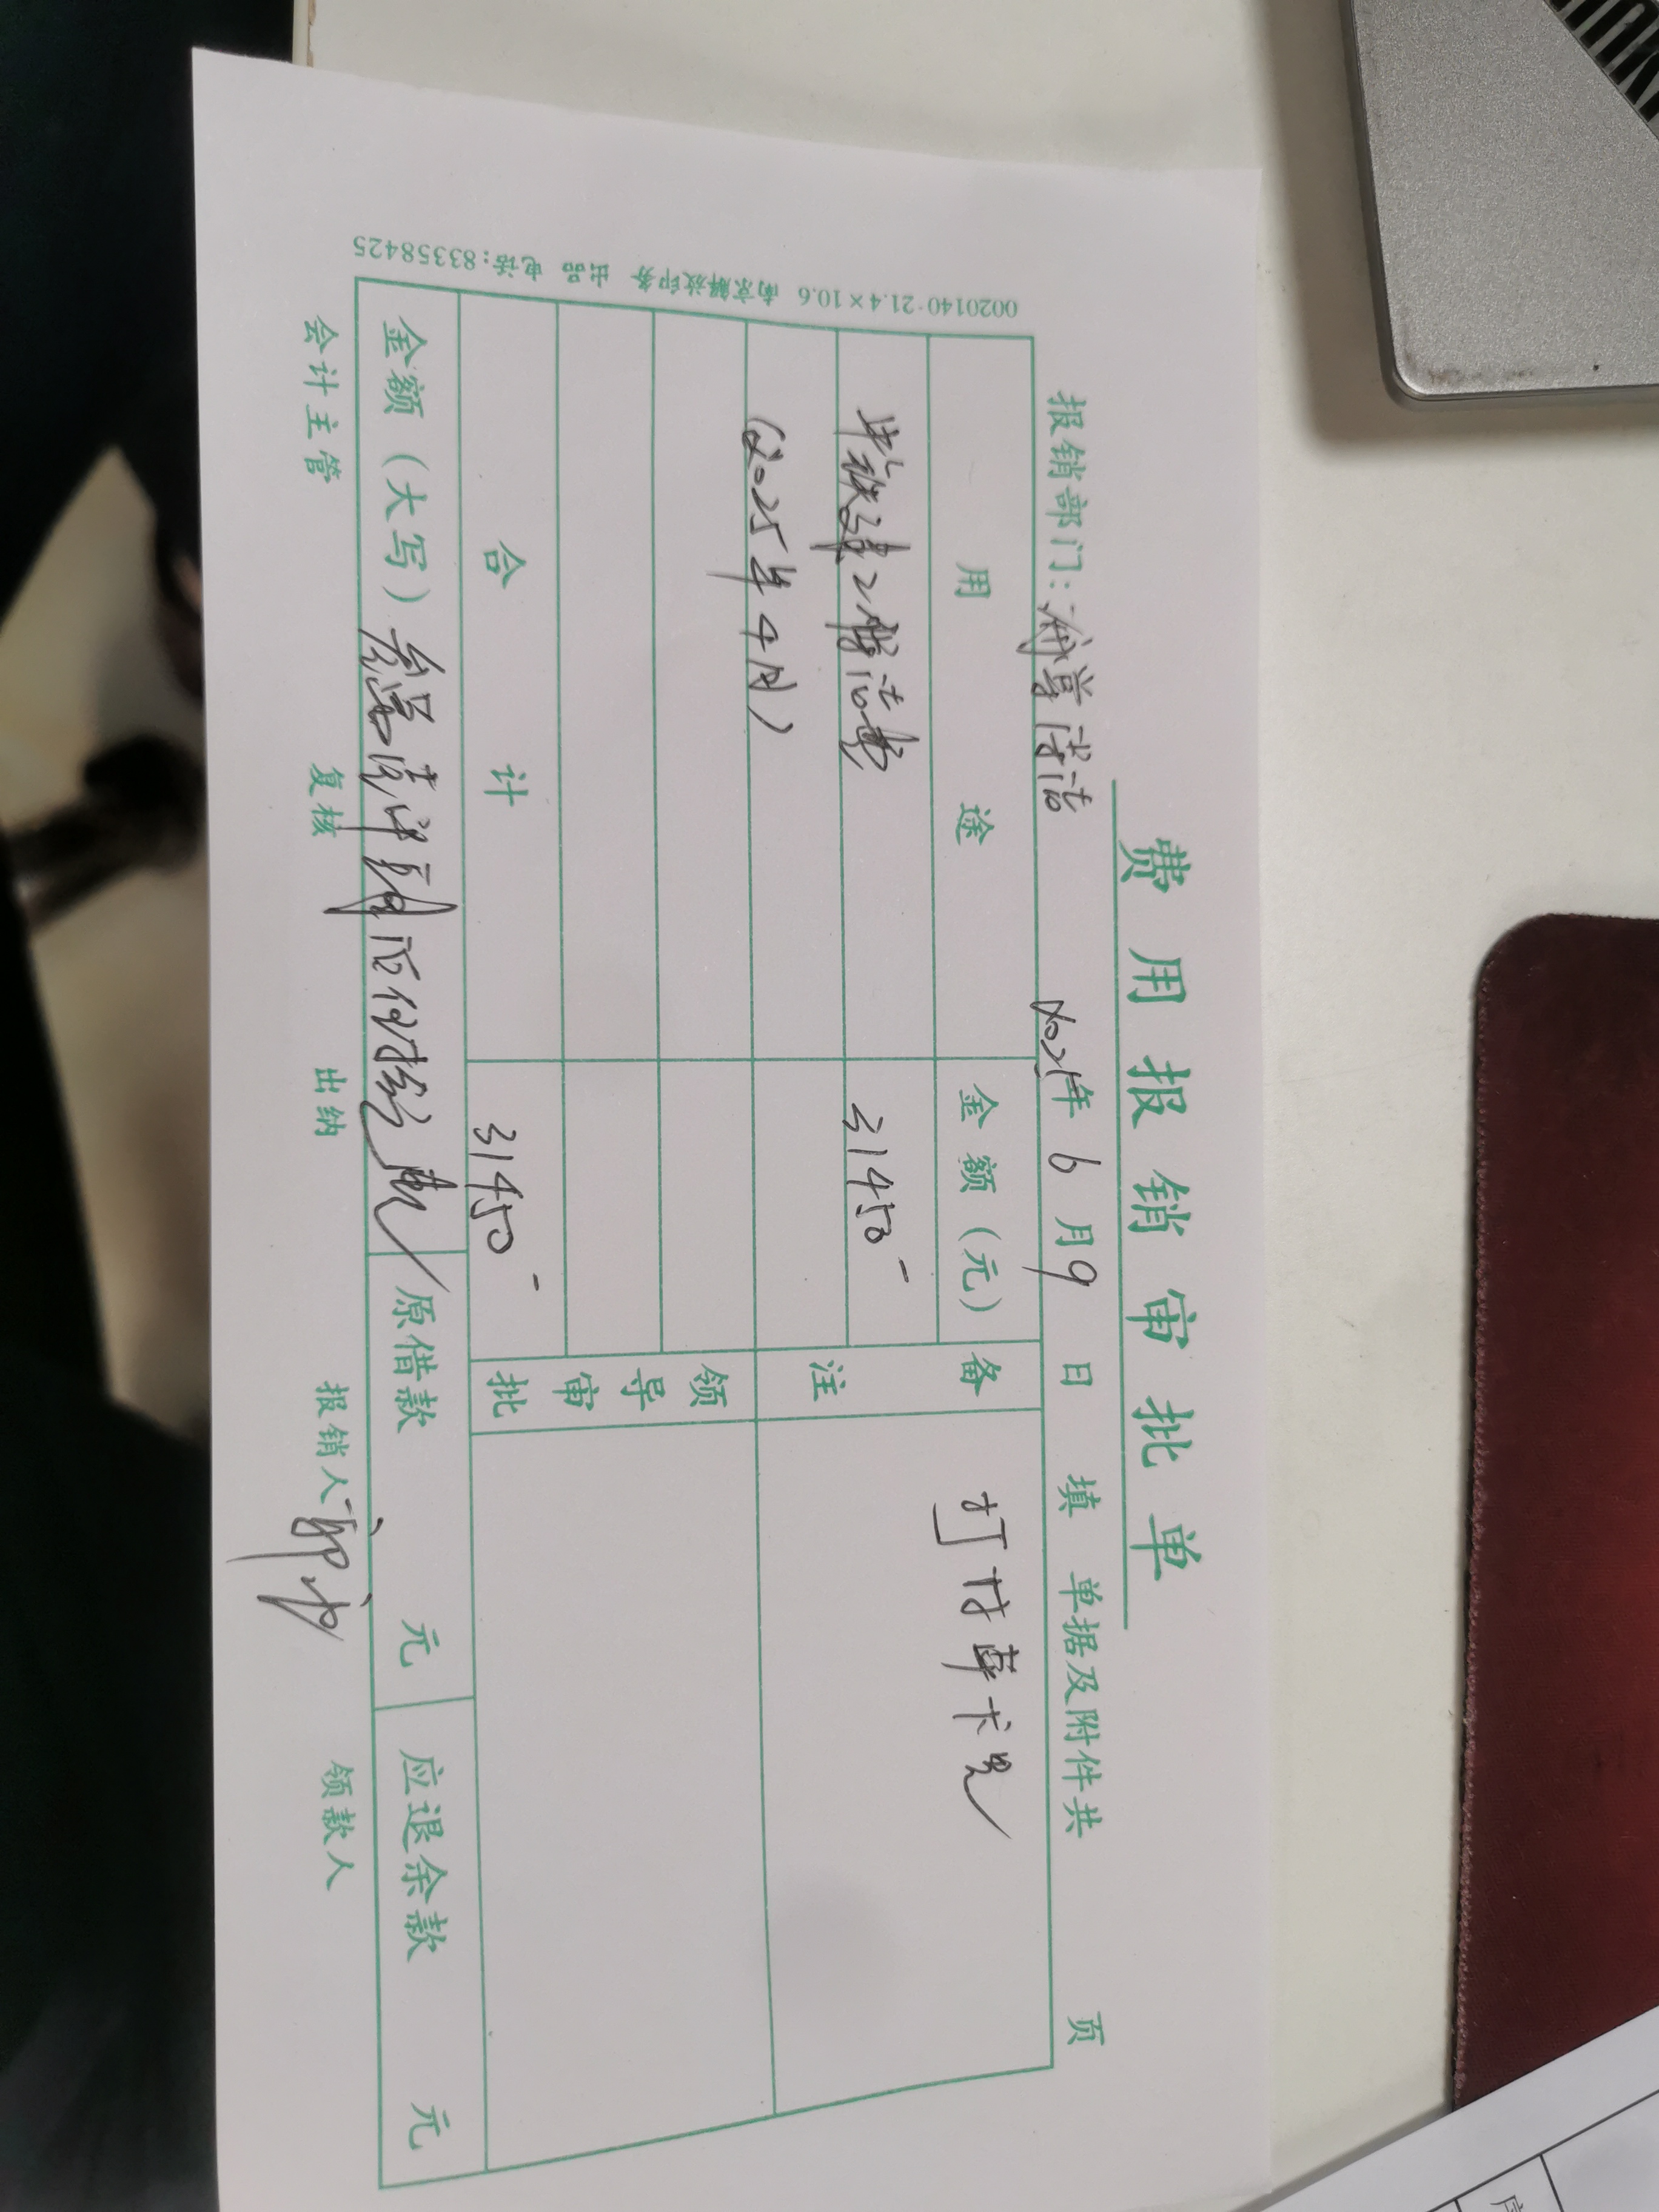 费用报销审批单
报销部门: 2025年6月9日填 单据及附件共 页
用途 金额（元） 备注 打付草卡兄
保洁费 31450-
（2025年4月）
领导审批
合计 31450-
金额（大写）叁万壹仟肆佰伍拾元 原借款 元 应退余款 元
会计主管 复核 出纳 报销人 领款人
0020140·21.4×10.6 南京解放印务 出品 电话:83358425